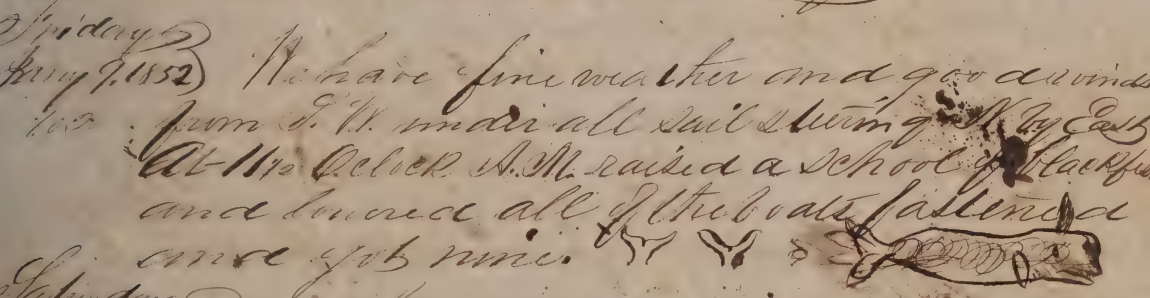 Friday
Jany 9, 1852) We have fine weather and good winds
from S. W. under all sail stering N by East
At 11 1/2 Oclock A.M. raised a school of blackfis
and lowered all of the boats fastened
and got nine.
Saturday